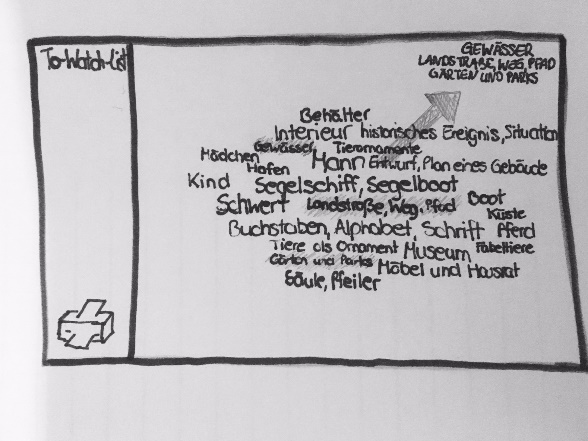 To-Watch-List
GEWÄSSER
LANDSTRAßE, WEG, PFAD
GÄRTEN UND PARKS
Behälter
Interieur historisches Ereignis, Situation
Gewässer Tierornamente
Mädchen Mann Entwurf, Plan eines Gebäude
Hafen
Kind Segelschiff, Segelboot
Schwert Landstraße, Weg, Pfad Boot
Küste
Buchstaben, Alphabet, Schrift Pferd
Tiere als Ornament Museum Fabeltiere
Gärten und Parks Möbel und Hausrat
Säule, Pfeiler